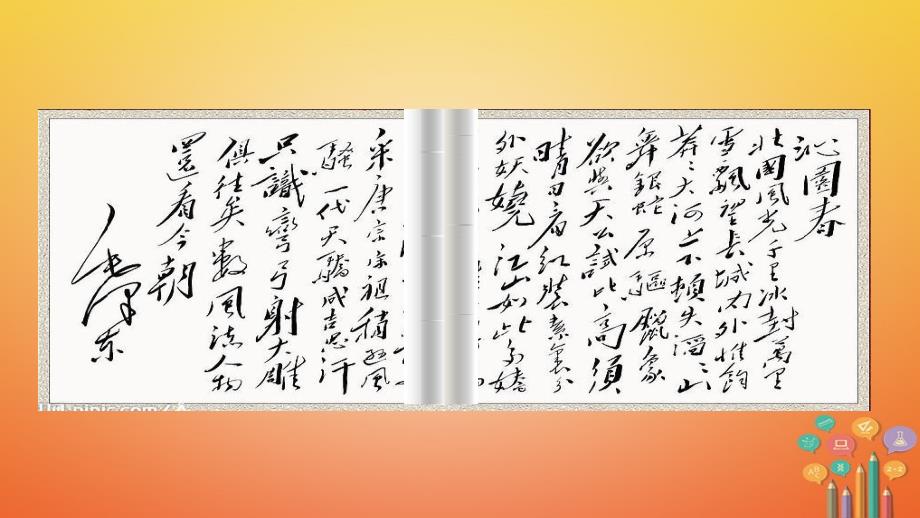 沁園春
北國風光千里冰封萬里
雪飄望長城內外惟餘
莽〻大河上下頓失滔〻山
舞銀蛇原驅臘象
欲與天公試比高須
晴日看紅裝素裹分
外妖嬈江山如此多嬌
采唐宗宋祖稍遜風
騷一代天驕成吉思汗
只識彎弓射大雕
俱往矣數風流人物
還看今朝
毛澤東